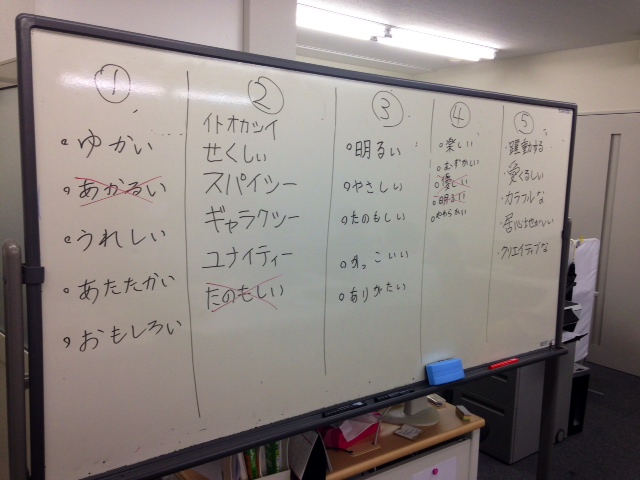 ①
・ゆかい
・あかるい
・うれしい
・あたたかい
・おもしろい
②
イトオカシイ
せくしい
スパイシー
ギャラクシー
ユナイティー
たのもしい
③
・明るい
・やさしい
・たのもしい
・かっこいい
・ありがたい
④
・楽しい
・むずかしい
・優しい
・明るい
・やわらかい
⑤
・躍動する
・愛くるしい
・カラフルな
・居心地がいい
・クリエイティブな